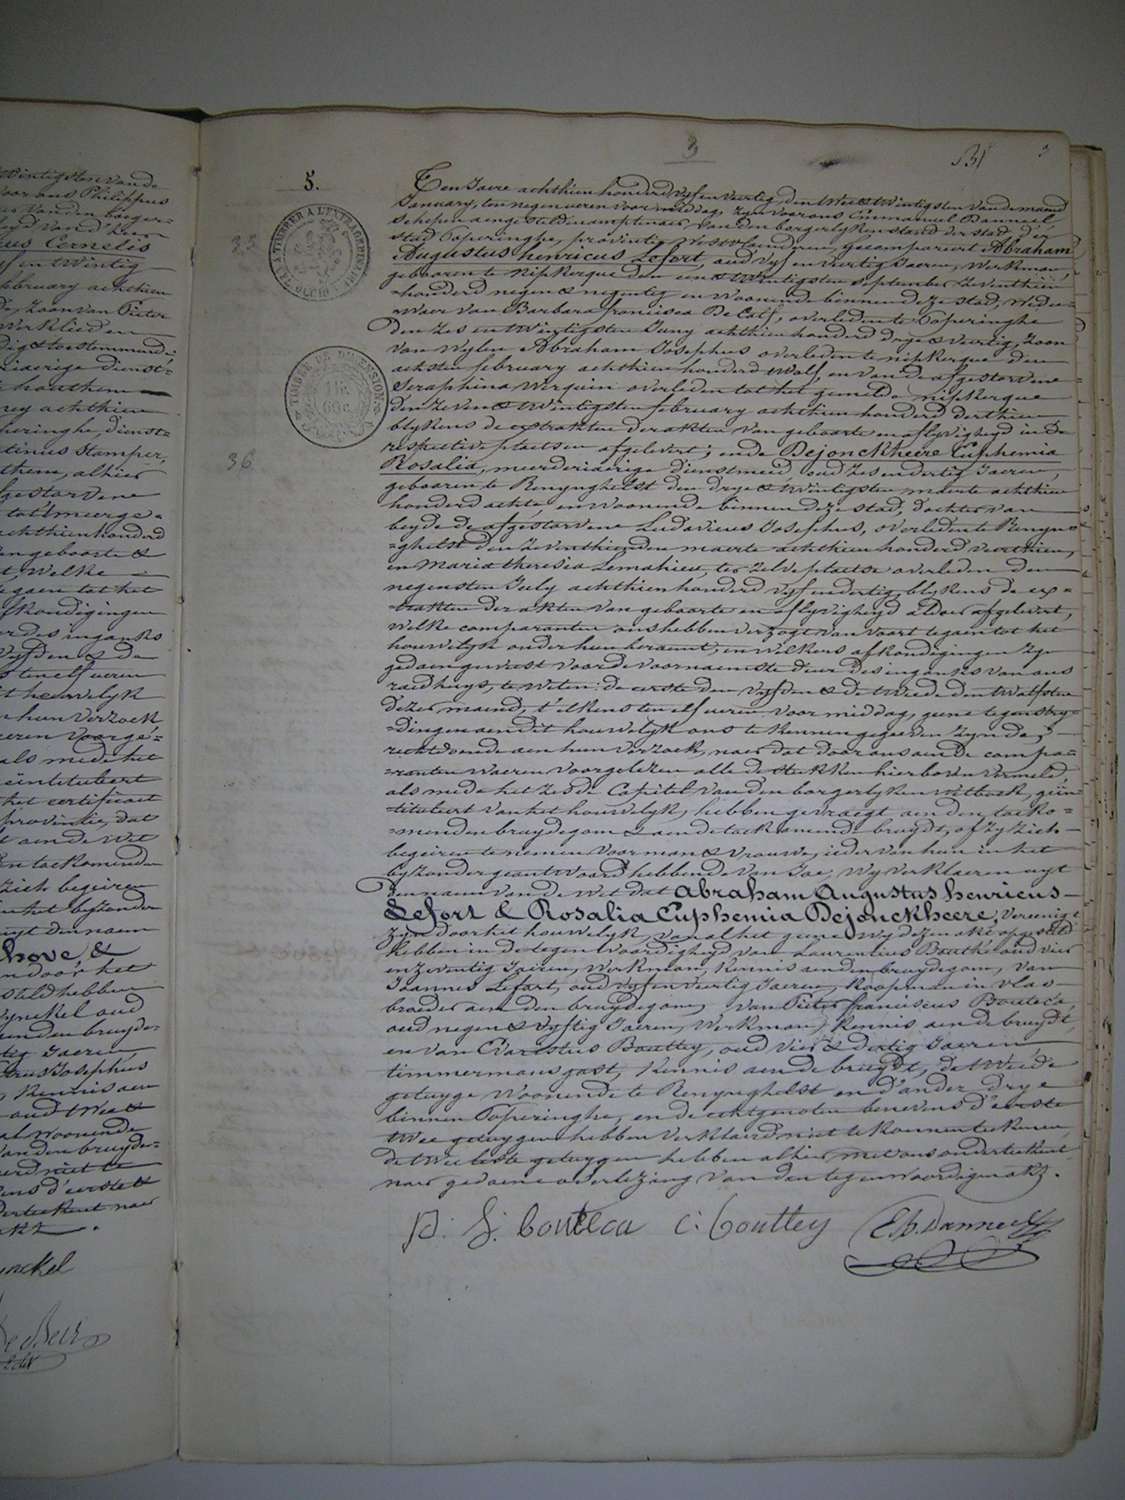 3
5.
Ten Jaere achthien honderd vyf en veertig den twee & twintigsten van de maend
January, ten negen ueren voormiddag, zyn voor ons Emmanuel Danneel
schepen aengestelden amptenaer van den borgerlyken stand der stad
stad Poperinghe, provintie Westvlaendren, gecompareert Abraham
Augustus henricus Lefort, oud vyf en veertig Jaeren, Werkman,
geboren te Nipkerque den een & twintigsten september zeventhien
honderd negen & negentig en woonende binnen deze stad, wede-
-waer van Barbara francisca De Calf, overleden te Poperinghe
den zes en twintigsten Juny achthien honderd drye & veertig, zoon
van wylen Abraham Josephus overleden te nipkerque den
achsten february achthien honderd twalf, en van de afgestorvene
Seraphina Werquin overleden tot het gemelde nipkerque
den zeven & twintigsten february achthien honderd derthien
blykens de extrakten der akten van geboorte en aflyvigheyd in de
respective plaetsen afgelevert; ende Dejonckheere Euphemia
Rosalia, meerderjaerige dienstmeid, oud zes en dertig Jaeren,
geboren te Renynghelst den drye & twintigsten maerte achthien
honderd achte, en woonende binnen deze stad, dochter van
beyde de afgestorvene Ludovicus Josephus, overleden te Renyn-
-ghelst den zeventhienden maerte achthien honderd veerthien,
en Maria theresia Lemahieu, ter zelve plaetse overleden den
negensten July achthien honderd vyf en dertig, blykens de ex-
-trakten der akten van geboorte en aflyvigheyd aldaer afgelevert,
Welke comparanten ons hebben verzogt van voort te gaen tot het
houwelyk onder hun beraemt, en wilkens afkondigingen zyn
gedaen geweest voor de voornaemste deur des ingangs van ons
raedhuys, te weten: de eerste den vyfden & de tweede den twalfsten
dezer maend, t'elkens ten elf ueren voor middag, geene tegenstry-
-dingen aen dit houwelyk ons te kennen gegeven zynde,
rechtdoende aen hun verzoek, naer dat door ons aen de compa-
-ranten waeren voorgelezen alle de stukken hier boven vermeld,
als mede het zesde Capitel van den borgerlyken wetboek, geïn-
-tituleert van het houwelyk, hebben gevraegt aen den toeko-
-menden bruydegom & aen de toekomende bruydt, of zy zich
begeiren te nemen voor man & vrouwe, ieder van hun in het
byzonder geantwoord hebbende van Jae, Wy verklaeren uyt
den naem van de Wet dat Abraham Augustus henricus
Lefort & Rosalia Euphemia Dejonckheere, vereenigt
zyn door het houwelyk, van al het geene wy dezen akt opgesteld
hebben in de tegenwoordigheyd van Laurentius Bouthé oud vier
en zeventig Jaeren, Werkman, kennis aen den bruydegom, van
Joannes Lefort, oud vyf en veertig Jaeren, koopman in vlas
broeder aen den bruydegom, van Pieter franciscus Bouteca,
oud negen & vyftig Jaeren, Werkman, kennis aen de bruydt,
en van Evaristus Bouttey, oud vier & dertig Jaeren,
timmermans gast, kennis aen de bruydt, de tweede
getuyge woonende te Renynghelst en d'ander drye
binnen Poperinghe, en de echtgenoten benevens d'eerste
twee getuygen hebben verklaerd niet te konnen teekenen,
de twee leste getuygen hebben alhier met ons onderteekent
naer gedaene overlezing van den tegenwoordigen akt.
p. f. bouteca c: bouttey E. Danneel